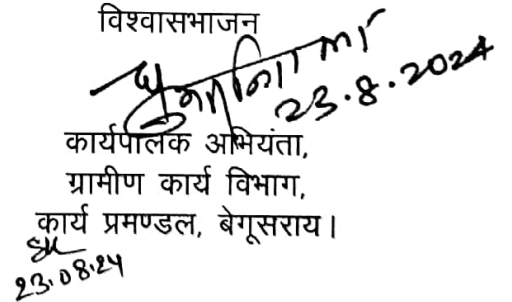 विश्वासभाजन
23.8.2024
कार्यपालक अभियंता,
ग्रामीण कार्य विभाग,
कार्य प्रमण्डल, बेगूसराय।
23.08.24